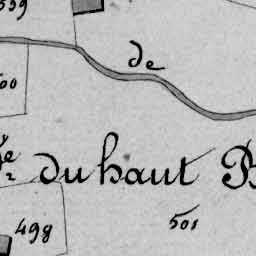 359
de
00
du haut B
498
501